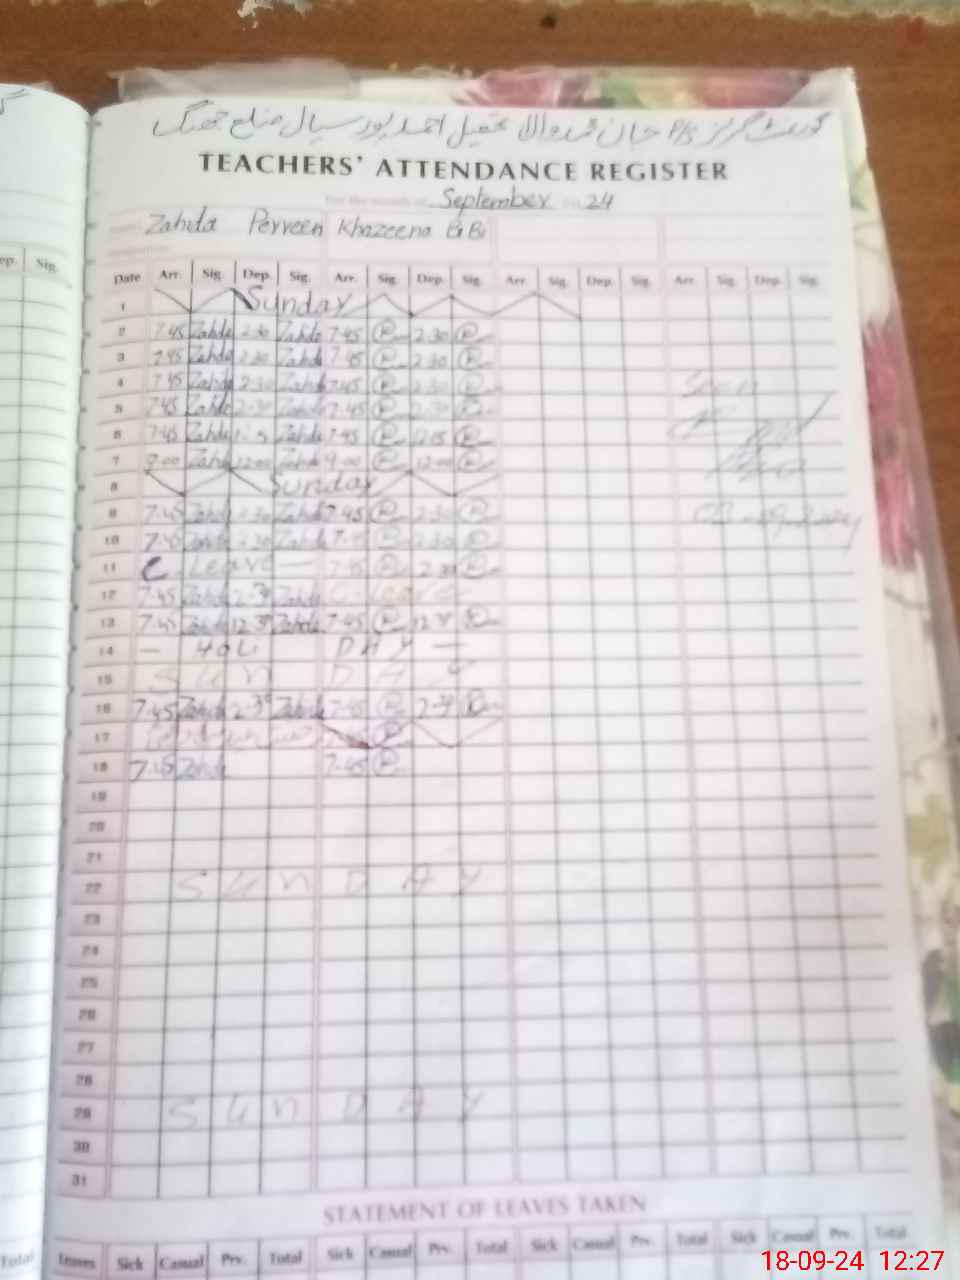 گورنمنٹ گرلز P/S خان محمد والا تحصیل احمد پور سیال ضلع جھنگ
TEACHERS' ATTENDANCE REGISTER
For the month of September 24
Zahida Perveen Khazeena BiBi
ep. Sig. Date Arr. Sig. Dep. Sig. Arr. Sig. Dep. Sig. Arr. Sig. Dep. Sig. Arr. Sig. Dep. Sig.
1 Sunday
2 7.45 Zahda 2.30 Zahda 7-45 2.30
3 7.45 Zahda 2.30 Zahda 7-45 2.30
4 7.45 Zahda 2-30 Zahda 7.45 2.30 Seen
5 7.45 Zahda 2-30 Zahda 7-45 2-30
6 7.45 Zahda Zahda 7-45 12.15
7 9.00 Zahda 12.00 Zahda 9-00 12-00
8 Sunday
9 7.45 Zahda 2.30 Zahda 7-45 2-30
10 7.45 Zahda 2.30 Zahda 2-30
11 C. Leave — 7-45
12 7.45 Zahda 2-30 Zahda C-Leave
13 7.45 Zahda 12.30 Zahda 7-45 12.30
14 — HOLI DAY —
15 SUN DAY
16 7.45 Zahda 2-30 Zahda 7-45 2-30
17
18 7.45 Zahda 7-45
19
20
21
22 SUN DAY
23
24
25
26
27
28
29 SUN DAY
30
31
STATEMENT OF LEAVES TAKEN
Total Leaves Sick Casual Prv. Total Sick Casual Prv. Total Sick Casual Prv. Total Sick Casual Prv. Total
18-09-24 12:27